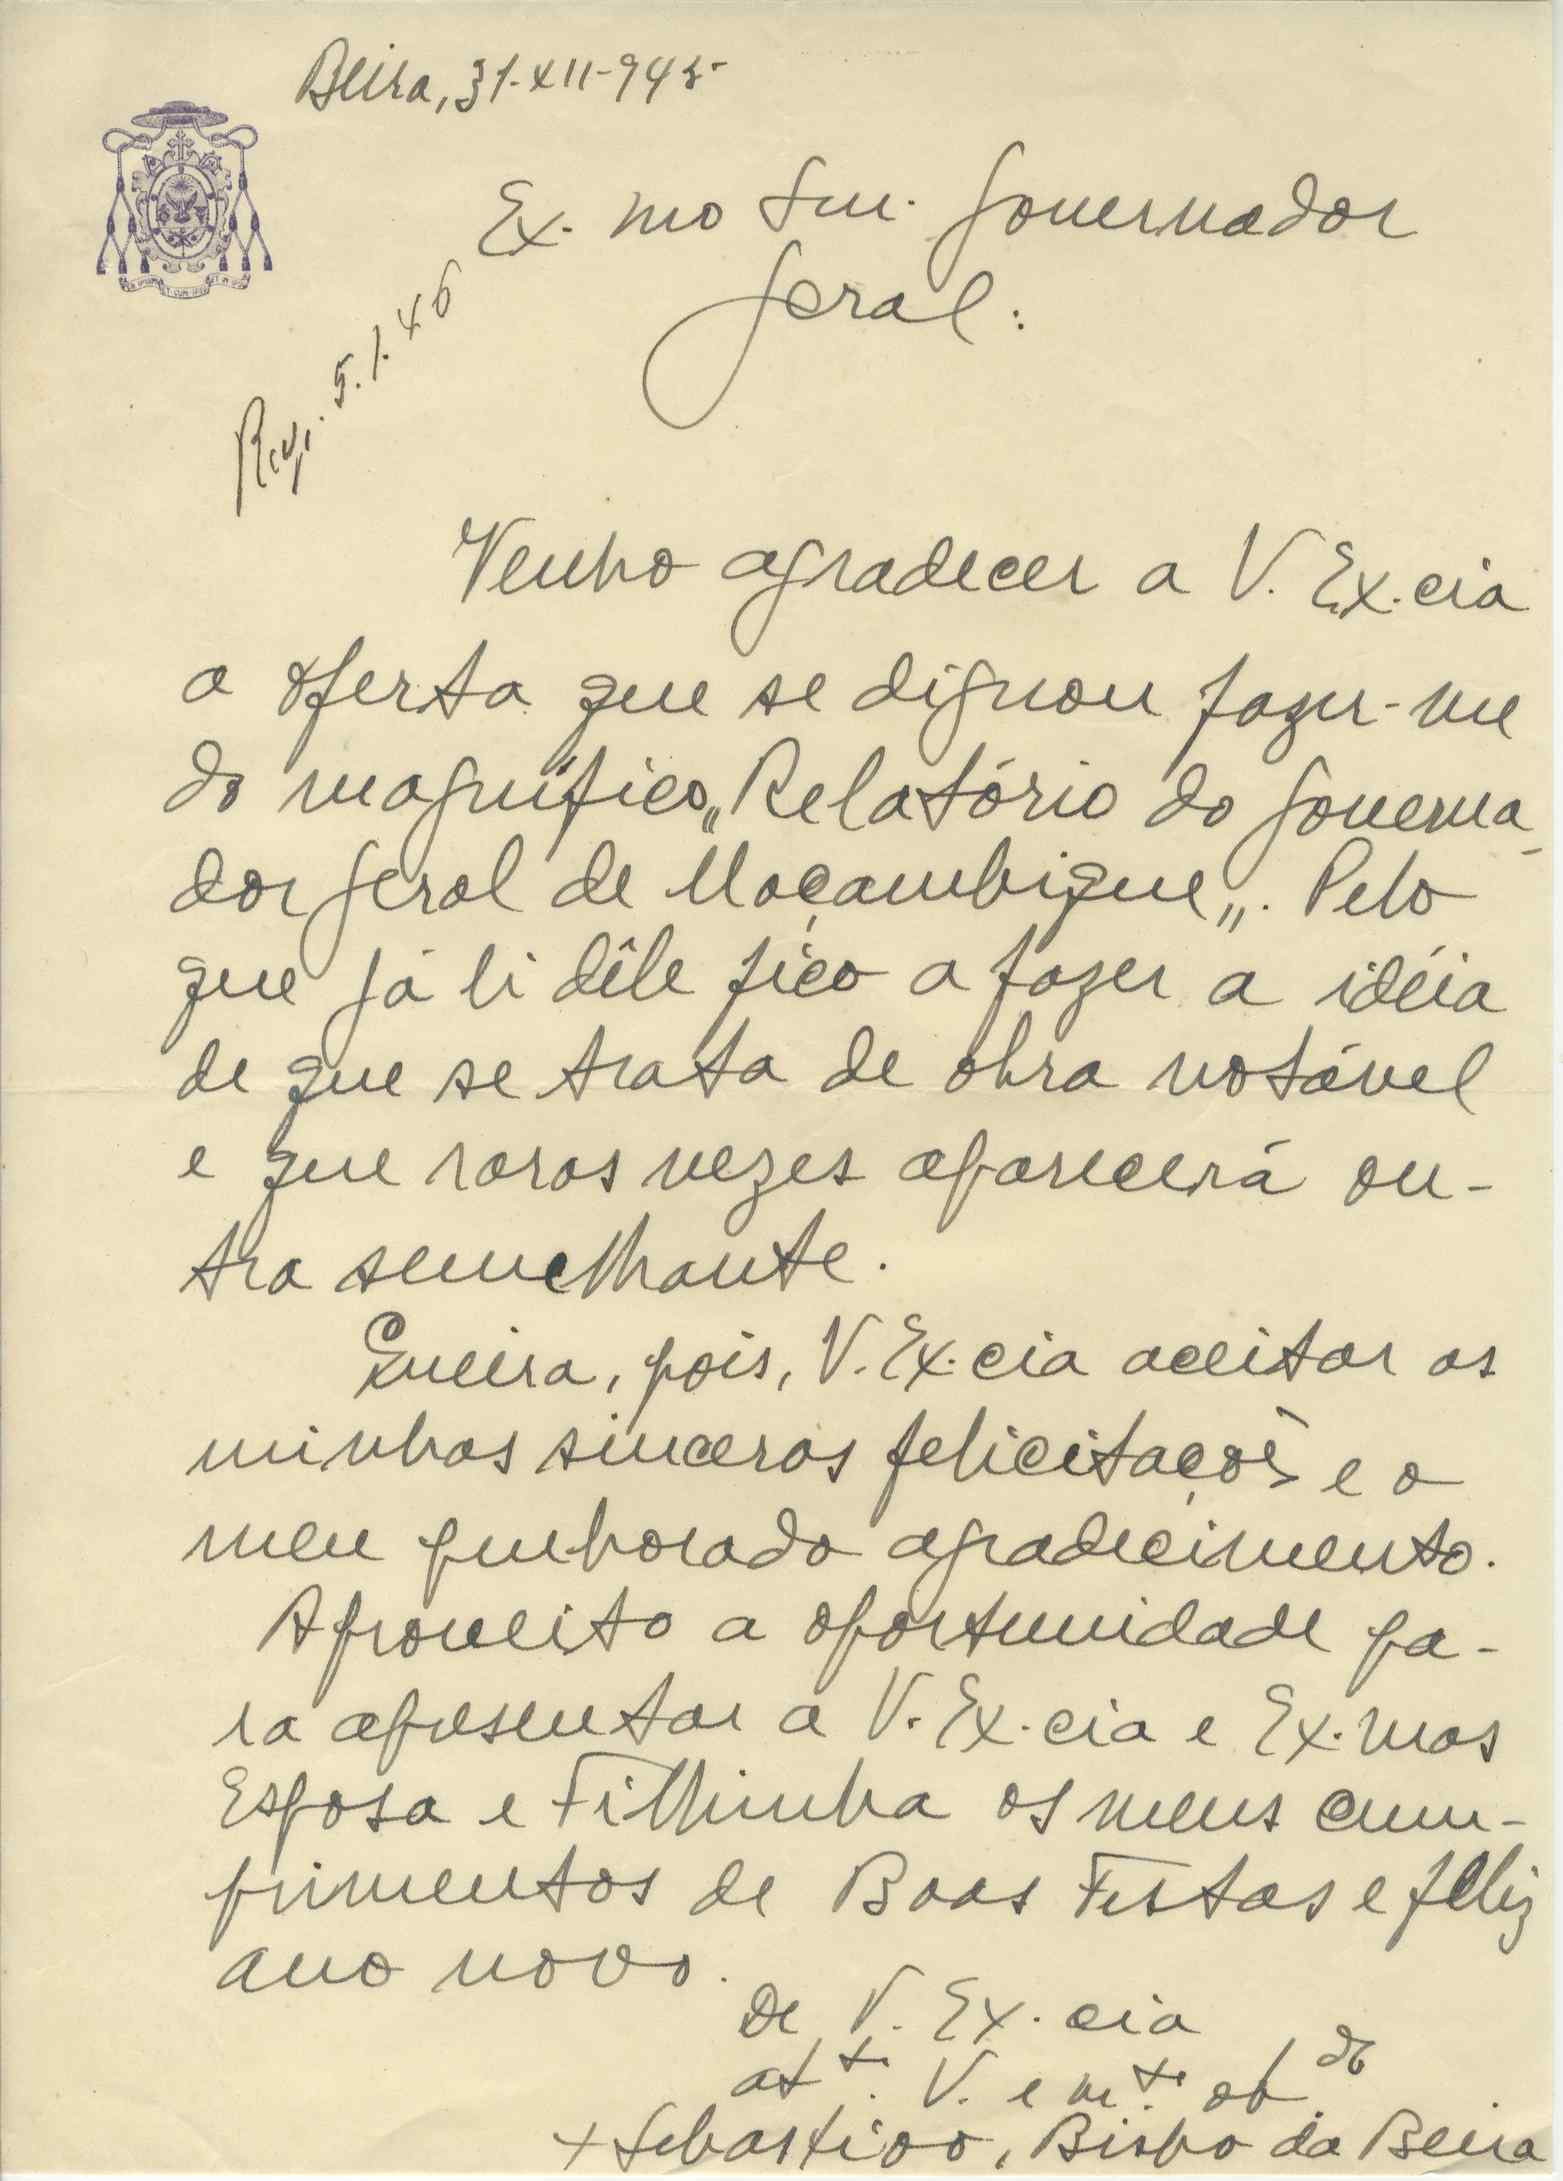 Beira, 31-XII-945
Ex.mo Snr. Governador
Geral:
5.1.46
Venho agradecer a V. Ex.cia
a oferta que se dignou fazer-me
do magnífico „Relatório do Governa-
dor Geral de Moçambique„. Pelo
que já li dêle fico a fazer a idéia
de que se trata de obra notável
e que raras vezes aparecerá ou-
tra semelhante.
Queira, pois, V. Ex.cia aceitar as
minhas sinceras felicitações e o
meu penhorado agradecimento.
Aproveito a oportunidade pa-
ra apresentar a V. Ex.cia e Ex.mas
Esposa e Filhinha os meus cum-
primentos de Boas Festas e feliz
ano novo.
De V. Ex.cia
att.º V. e m.to ob.do
+ Sebastião, Bispo da Beira